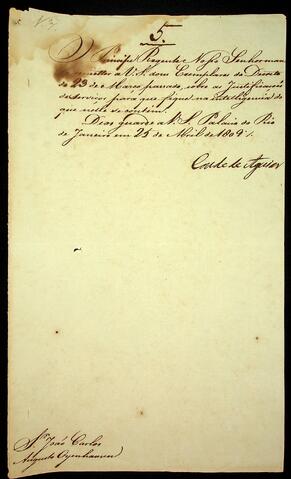 5.
O Principe Regente Nosso Senhor man
remetter a V. S. dous Exemplares do Decreto
de 23 de Março passado, sobre as Justificaçoẽs
de serviço; para que fique na intelligencia do
que nelle se contem.
Deos guarde a V. S. Palacio do Rio
de Janeiro em 25 de Abril de 1809
Conde de Aguiar
Sr. João Carlos
Augusto Oyenhausen